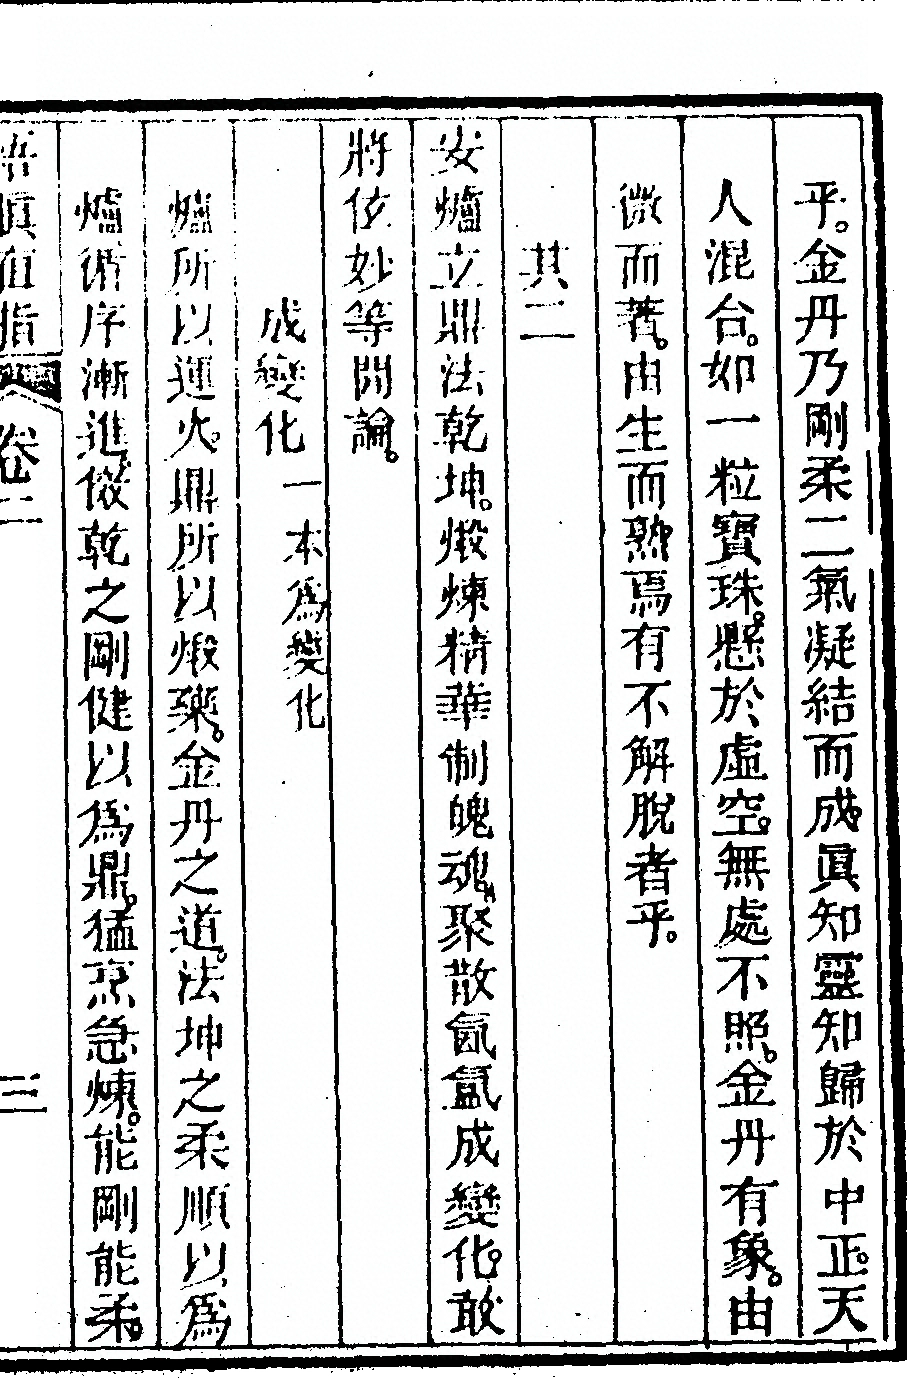 乎。金丹乃剛柔二氣凝結而成。眞知靈知歸於中正。天
人混合。如一粒寶珠。懸於虛空。無處不照。金丹有象。由
微而著。由生而熟焉有不解脫者乎。
其二
安爐立鼎法乾坤。煅煉精華制魄魂。聚散氤氳成變化。敢
將玄妙等閒論。
成變化 一本爲變化
爐所以運火。鼎所以煅藥。金丹之道。法坤之柔順以爲
爐循序漸進。倣乾之剛健以爲鼎。猛烹急煉。能剛能柔。
悟眞直指 卷二 三